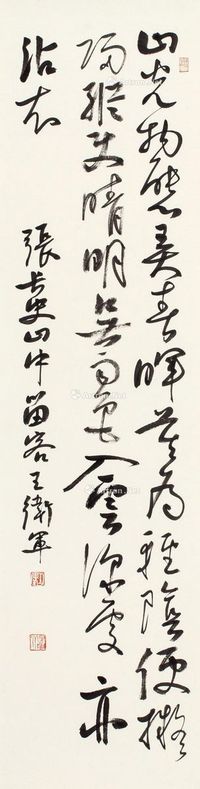 山光物態弄春暉莫為輕陰便擬
歸縱使晴明無雨色入雲深處亦
沾衣
張長史山中留客王衛軍